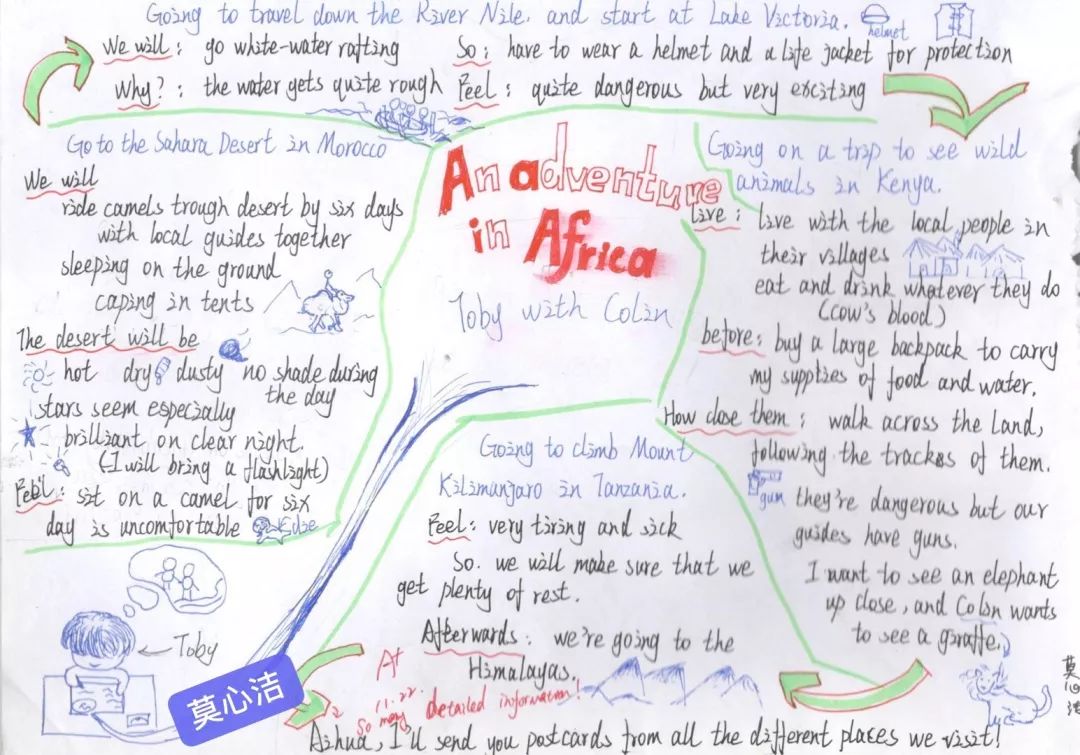 Going to travel down the River Nile, and start at Lake Victoria.
helmet
We will : go white-water rafting
So : have to wear a helmet and a life jacket for protection
Why? : the water gets quite rough
Feel : quite dangerous but very exciting
An adventure
in Africa
Toby with Colin
Go to the Sahara Desert in Morocco
We will
ride camels trough desert by six days
with local guides together
sleeping on the ground
caping in tents
The desert will be
hot dry dusty no shade during
the day
stars seem especially
brilliant on clear night.
(I will bring a flashlight)
Feel : sit on a camel for six
day is uncomfortable
die
Going on a trip to see wild
animals in Kenya.
Live : live with the local people in
their villages
eat and drink whatever they do
(cow's blood)
before : buy a large backpack to carry
my supplies of food and water.
How close them : walk across the land,
following the trackes of them.
gun
they're dangerous but our
guides have guns.
I want to see an elephant
up close, and Colin wants
to see a giraffe.
Going to climb Mount
Kilimanjaro in Tanzania.
Feel : very tiring and sick
So. we will make sure that we
get plenty of rest.
Afterwards : we're going to the
Himalayas.
Toby
莫心洁
A+
11.22.
So many detailed information!
Aihua, I'll send you postcards from all the different places we visit!
莫心洁